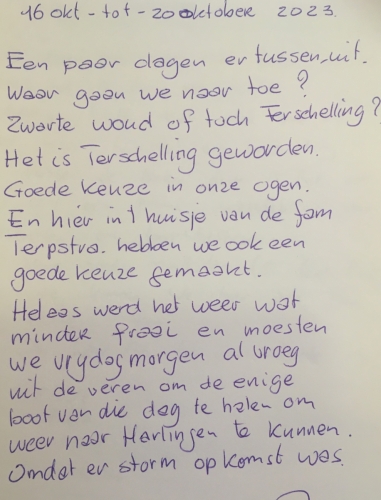 16 okt - tot - 20 oktober 2023.
Een paar dagen er tussen uit.
Waar gaan we naar toe?
Zwarte woud of toch Terschelling?
Het is Terschelling geworden.
Goede keuze in onze ogen.
En hier in 't huisje van de fam
Terpstra. hebben we ook een
goede keuze gemaakt.
Helaas werd het weer wat
minder fraai en moesten
we vrydagmorgen al vroeg
uit de veren om de enige
boot van die dag te halen om
weer naar Harlingen te kunnen.
Omdat er storm op komst was.